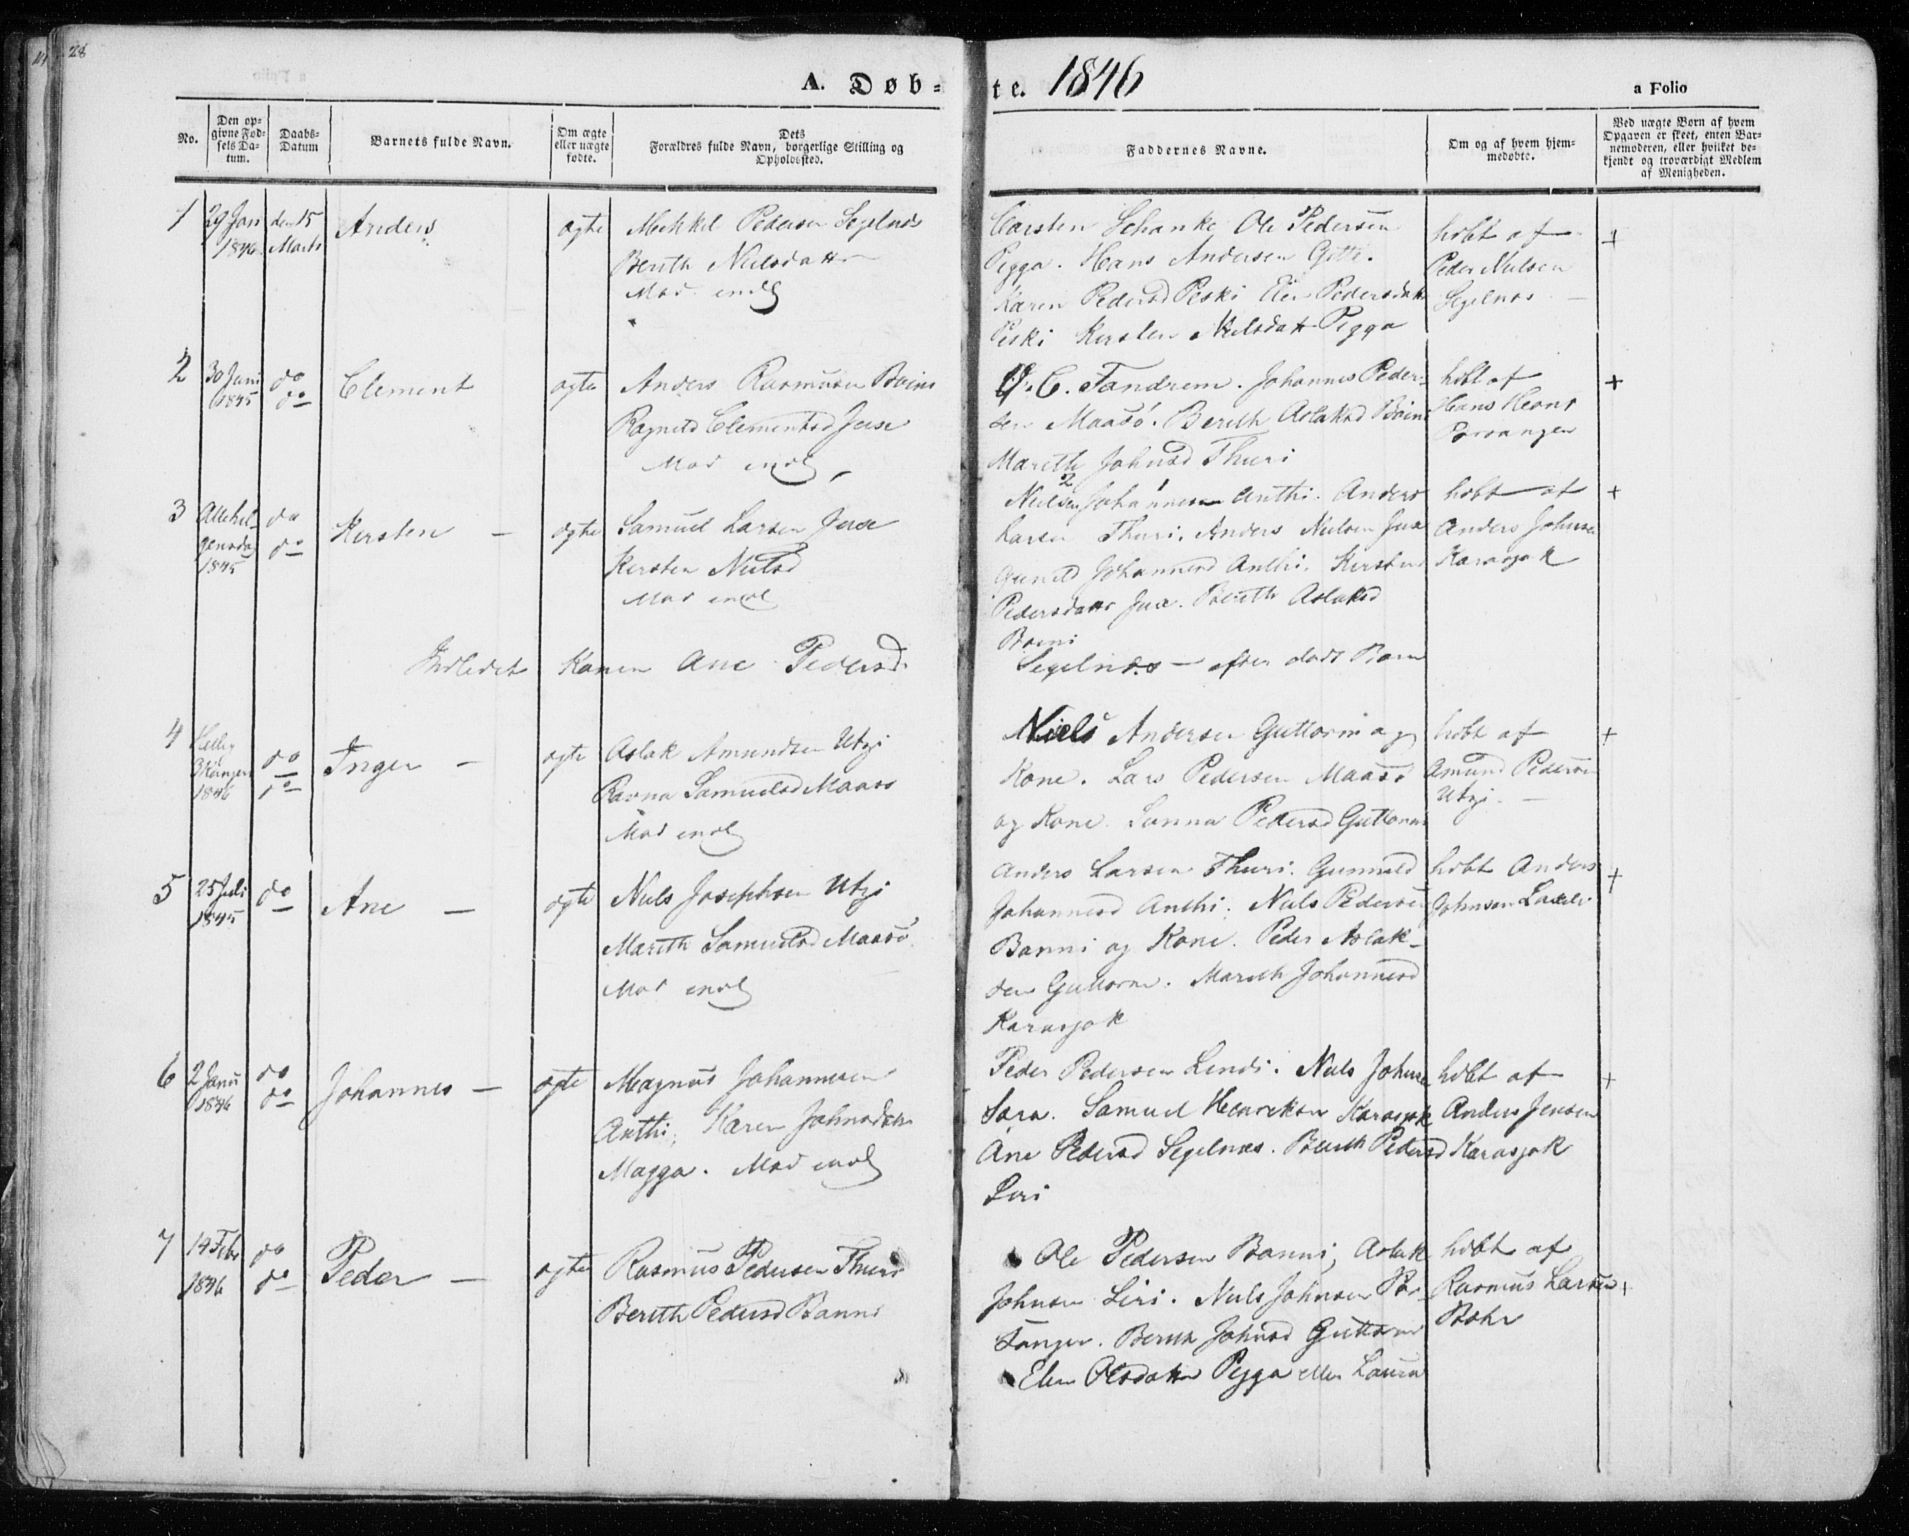 28
A. Døb-te. 1846
a Folio
No.
Den opgivne Fødsels Datum.
Daabs-Datum
Barnets fulde Navn.
Om ægte eller uægte fødte.
Dets Forældres fulde Navn, borgerlige Stilling og Opholdssted.
Faddernes Navne.
Om og af hvem hjemmedøbte.
Ved uægte Børn af hvem Opgaven er skeet, enten Barnemoderen, eller hvilket bekjendt og troværdigt Medlem af Menigheden.
1 29 Jan 1846 den 15 Marts Anders ægte Mikkel Pedersen Segelnæs
Berith Nielsdatter
Carsten Schanke Ole Pedersen
Pegga. Hans Andersen Gitti.
Karen Pedersd Peski Elen Pedersdatt
Peski Kersten Nielsdatt Pegga
hdbt af
Peder Nielsen
Segelnæs
+
2 30 Juni 1845 do do Clement ægte Anders Rasmusen Boini
Ragnild Clementsd Juse
C. Tandrem. Johannes Peder-
sen Maasø. Berith Aslaksd Boini
Marith Johnsd Thuri
hdbt af
Hans
Porsanger
+
3 Allehelgensdag 1845 do do Kersten - ægte Samuel Larsen Juse
Kersten Nielsd
Nielsen Johannesen Anthi. Anders
Larsen Thuri. Anders Nielsen Jusa
Gunild Johannesd Anthi. Kersten
Pedersdatt Jusa. Berith Aslaksd
Boini
hdbt af
Anders Johnsen
Karasjok
+
Indledet Karen Ane Pedersd.
Segelnæs - efter dødt Barn
4 Hellig 3 Konger 1846 do do Inger - ægte Aslak Amundsen Utzi
Ravna Samuelsd Maasø
Niels Andersen Guttorm og
Kone. Lars Pedersen Maasø
og Kone. Sanna Pedersd Guttorm
hdbt af
Amund Pedersen
Utzi. -
+
5 25 Juli 1845 do Ane - ægte Niels Josephsen Utzi
Marith Samuelsd Maasø.
Anders Larsen Thuri. Gunnild
Johannesd Anthi. Niels Pedersen
Banni og Kone. Peder Aslak-
sen Guttorm. Marith Johannesd
Karasjok
hdbt Anders
Johnsen
+
6 2 Janu 1846 do do Johannes - ægte Magnus Johannesen
Anthi, Karen Johnsdatt
Magga.
Peder Pedersen Lindi. Niels Johnsen
Sara. Samuel Henriksen Karasjok
Ane Pedersd Segelnæs. Berith Pedersd
Siri
hdbt af
Anders Jensen
Karasjok
+
7 14 Febr 1846 do do Peder - ægte Rasmus Pedersen Thuri
Berith Pedersd Banni
Ole Pedersen Banni, Aslak
Johnsen Siri. Niels Johnsen Por-
sanger. Berith Johnsd Guttorm
Elen Olsdatter Pegga eller Laura
hdbt af
Rasmus Larsen
+